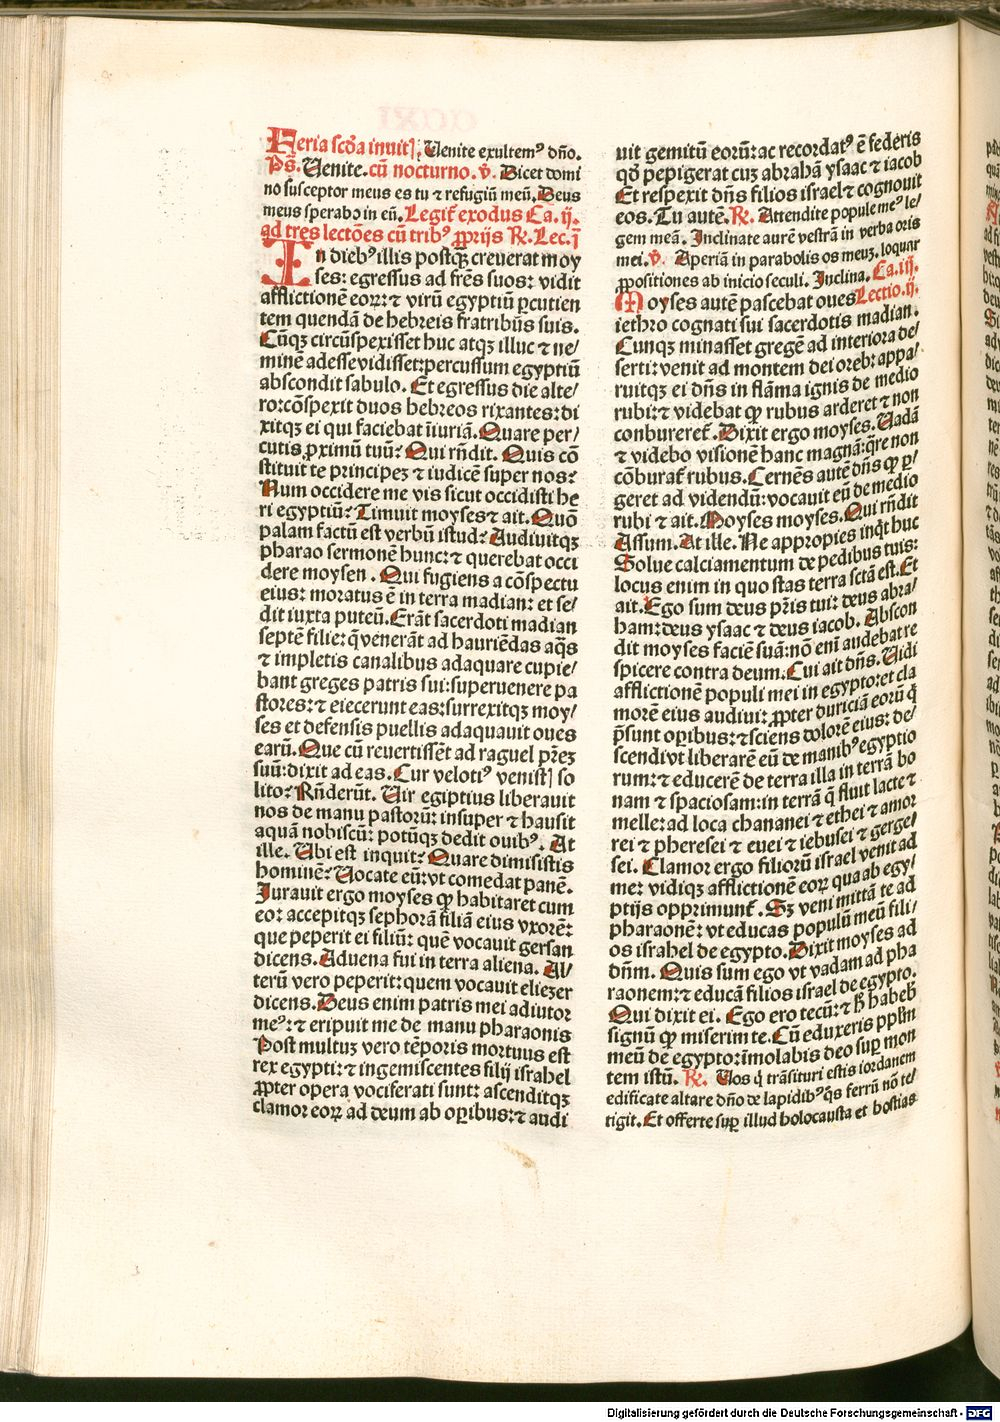 Feria scđa inuitɉ. Uenite exultemꝰ dño.
Ps̄. Uenite. cū nocturno. v̄. Dicet domi
no susceptor meus es tu ⁊ refugiū meū. Deus
meus sperabo in eū. Legit̄ exodus Ca. ij.
ad tres lectōes cū tribꝰ ꝓprijs R̄. Lec. j
In diebꝰ illis postqꝫ creuerat moy
ses: egressus ad fr̄es suos: vidit
afflictionē eoꝝ: ⁊ virū egyptiū ꝑcutien
tem quendā de hebreis fratribus suis.
Cūqꝫ circūspexisset huc atqꝫ illuc ⁊ ne/
minē adesse vidisset: percussum egyptiū
abscondit sabulo. Et egressus die alte/
ro: cōspexit duos hebreos rixantes: di
xitqꝫ ei qui faciebat iiuriā. Quare per/
cutis proximū tuū? Qui rñdit. Quis cō
stituit te principeꝫ ⁊ iudicē super nos?
Num occidere me vis sicut occidisti he
ri egyptiū? Timuit moyses ⁊ ait. Quō
palam factū est verbū istud? Audiuitqꝫ
pharao sermonē hunc: ⁊ querebat occi
dere moysen. Qui fugiens a cōspectu
eius: moratus ē in terra madian: et se/
dit iuxta puteū. Erāt sacerdoti madian
septē filie: q̄ venerāt ad hauriēdas aq̄s
⁊ impletis canalibus adaquare cupie/
bant greges patris sui: superuenere pa
stores: ⁊ eiecerunt eas: surrexitqꝫ moy/
ses et defensis puellis adaquauit oues
earū. Que cū reuertissēt ad raguel pr̄eꝫ
suū: dixit ad eas. Cur velotiꝰ venistɉ so
lito? Rñderūt. Uir egiptius liberauit
nos de manu pastorū: insuper ⁊ hausit
aquā nobiscū: potūqꝫ dedit ouibꝰ. At
ille. Ubi est inquit? Quare dimisistis
hominē? Uocate eū: vt comedat panē.
Jurauit ergo moyses ꝙ habitaret cum
eo: accepitqꝫ sephorā filiā eius vxorē:
que peperit ei filiū: quē vocauit gersan
dicens. Aduena fui in terra aliena. Al/
terū vero peperit: quem vocauit eliezer
dicens. Deus enim patris mei adiutor
meꝰ: ⁊ eripuit me de manu pharaonis
Post multuꝫ vero tēporis mortuus est
rex egypti: ⁊ ingemiscentes filij israhel
ꝓpter opera vociferati sunt: ascenditqꝫ
clamor eoꝝ ad deum ab oꝑibus: ⁊ audi
uit gemitū eorū: ac recordatꝰ ē federis
qđ pepigerat cuꝫ abrahā ysaac ⁊ iacob
Et respexit dñs filios israel ⁊ cognouit
eos. Tu autē. R̄. Attendite popule meꝰ le/
gem meā. Inclinate aurē vestrā in verba oris
mei. v̄. Aperiā in parabolis os meuꝫ. loquar
ꝓpositiones ab inicio seculi. Inclina. Ca. iij.
Moyses autē pascebat oues Lectio. ij.
iethro cognati sui sacerdotis madian.
Cunqꝫ minasset gregē ad interiora de/
serti: venit ad montem dei oreb: appa/
ruitqꝫ ei dñs in flāma ignis de medio
rubi: ⁊ videbat ꝙ rubus arderet ⁊ non
conbureret̄. Dixit ergo moyses. Uadā
⁊ videbo visionē hanc magnā: q̄re non
cōburat̄ rubus. Cernēs autē dñs ꝙ ꝑ/
geret ad videndū: vocauit eū de medio
rubi ⁊ ait. Moyses moyses. Qui rñdit
Assum. At ille. Ne appropies inqt huc
Solue calciamentum de pedibus tuis:
locus enim in quo stas terra sctā est. Et
ait. Ego sum deus pr̄is tui: deus abra/
ham: deus ysaac ⁊ deus iacob. Abscon
dit moyses faciē suā: nō eni audebat re
spicere contra deum. Cui ait dñs. Uidi
afflictionē populi mei in egypto: et cla
morē eius audiui: ꝓpter duriciā eorū q̄
p̄sunt oꝑibus: ⁊ sciens dolorē eius: de/
scendi vt liberarē eū de manibꝰ egyptio
rum: ⁊ educerē de terra illa in terrā bo
nam ⁊ spaciosam: in terrā q̄ fluit lacte ⁊
melle: ad loca chananei ⁊ ethei ⁊ amor
rei ⁊ pheresei ⁊ euei ⁊ iebusei ⁊ gerge/
sei. Clamor ergo filiorū israel venit ad
me: vidiqꝫ afflictionē eoꝝ qua ab egy/
ptijs opprimunt̄. Sꝫ veni mittā te ad
pharaonē: vt educas populū meū fili/
os israhel de egypto. Dixit moyses ad
dñm. Quis sum ego vt vadam ad pha
raonem: ⁊ educā filios israel de egypto.
Qui dixit ei. Ego ero tecū: ⁊ ħ habeb̄
signū ꝙ miserim te. Cū eduxeris pplm̄
meū de egypto: imolabis deo suꝑ mon
tem istū. R̄. Uos q̇ trāsituri estis iordanem
edificate altare dño de lapidibꝰ q̄s ferrū nō te/
tigit. Et offerte suꝑ illud holocausta et hostias
Digitalisierung gefördert durch die Deutsche Forschungsgemeinschaft - DFG